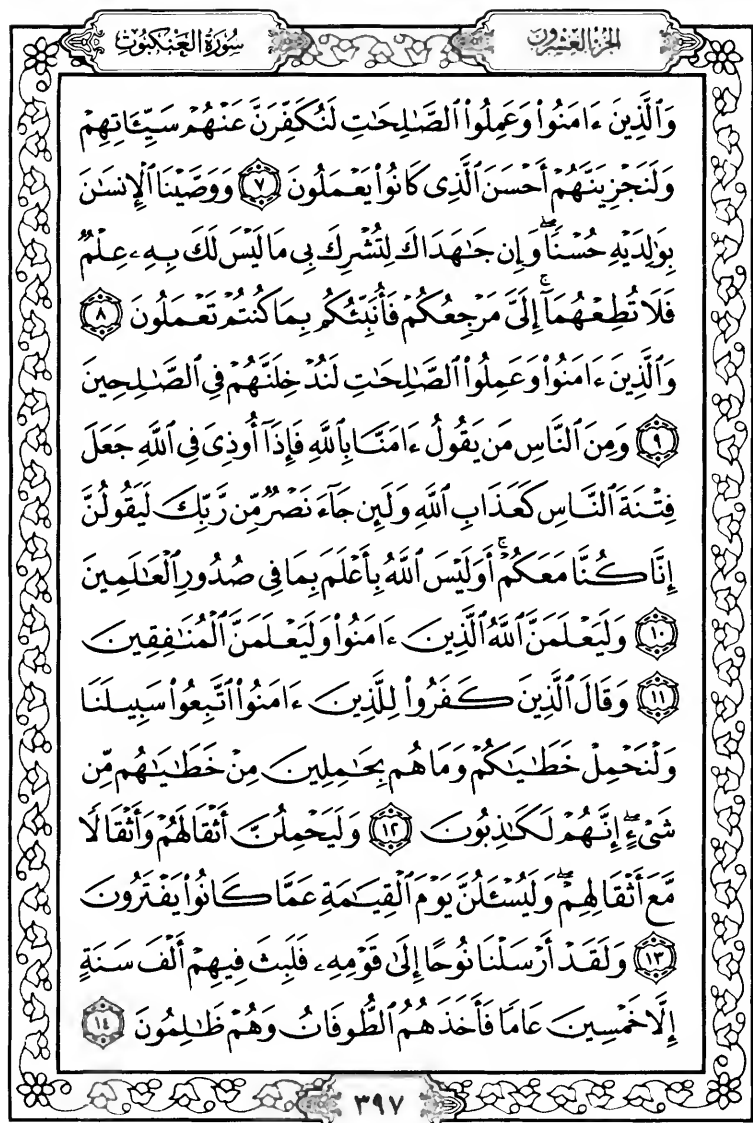 سُورَةُ العَنكَبُوتِ
الجُزءُ العِشْرُونَ
وَٱلَّذِينَ ءَامَنُوا۟ وَعَمِلُوا۟ ٱلصَّٰلِحَٰتِ لَنُكَفِّرَنَّ عَنْهُمْ سَيِّـَٔاتِهِمْ
وَلَنَجْزِيَنَّهُمْ أَحْسَنَ ٱلَّذِى كَانُوا۟ يَعْمَلُونَ ٧ وَوَصَّيْنَا ٱلْإِنسَٰنَ
بِوَٰلِدَيْهِ حُسْنًاۖ وَإِن جَٰهَدَاكَ لِتُشْرِكَ بِى مَا لَيْسَ لَكَ بِهِۦ عِلْمٌ
فَلَا تُطِعْهُمَآۚ إِلَىَّ مَرْجِعُكُمْ فَأُنَبِّئُكُم بِمَا كُنتُمْ تَعْمَلُونَ ٨
وَٱلَّذِينَ ءَامَنُوا۟ وَعَمِلُوا۟ ٱلصَّٰلِحَٰتِ لَنُدْخِلَنَّهُمْ فِى ٱلصَّٰلِحِينَ
٩ وَمِنَ ٱلنَّاسِ مَن يَقُولُ ءَامَنَّا بِٱللَّهِ فَإِذَآ أُوذِىَ فِى ٱللَّهِ جَعَلَ
فِتْنَةَ ٱلنَّاسِ كَعَذَابِ ٱللَّهِ وَلَئِن جَآءَ نَصْرٌ مِّن رَّبِّكَ لَيَقُولُنَّ
إِنَّا كُنَّا مَعَكُمْۚ أَوَلَيْسَ ٱللَّهُ بِأَعْلَمَ بِمَا فِى صُدُورِ ٱلْعَٰلَمِينَ
١٠ وَلَيَعْلَمَنَّ ٱللَّهُ ٱلَّذِينَ ءَامَنُوا۟ وَلَيَعْلَمَنَّ ٱلْمُنَٰفِقِينَ
١١ وَقَالَ ٱلَّذِينَ كَفَرُوا۟ لِلَّذِينَ ءَامَنُوا۟ ٱتَّبِعُوا۟ سَبِيلَنَا
وَلْنَحْمِلْ خَطَٰيَٰكُمْ وَمَا هُم بِحَٰمِلِينَ مِنْ خَطَٰيَٰهُم مِّن
شَىْءٍۖ إِنَّهُمْ لَكَٰذِبُونَ ١٢ وَلَيَحْمِلُنَّ أَثْقَالَهُمْ وَأَثْقَالًا
مَّعَ أَثْقَالِهِمْۖ وَلَيُسْـَٔلُنَّ يَوْمَ ٱلْقِيَٰمَةِ عَمَّا كَانُوا۟ يَفْتَرُونَ
١٣ وَلَقَدْ أَرْسَلْنَا نُوحًا إِلَىٰ قَوْمِهِۦ فَلَبِثَ فِيهِمْ أَلْفَ سَنَةٍ
إِلَّا خَمْسِينَ عَامًا فَأَخَذَهُمُ ٱلطُّوفَانُ وَهُمْ ظَٰلِمُونَ ١٤
٣٩٧